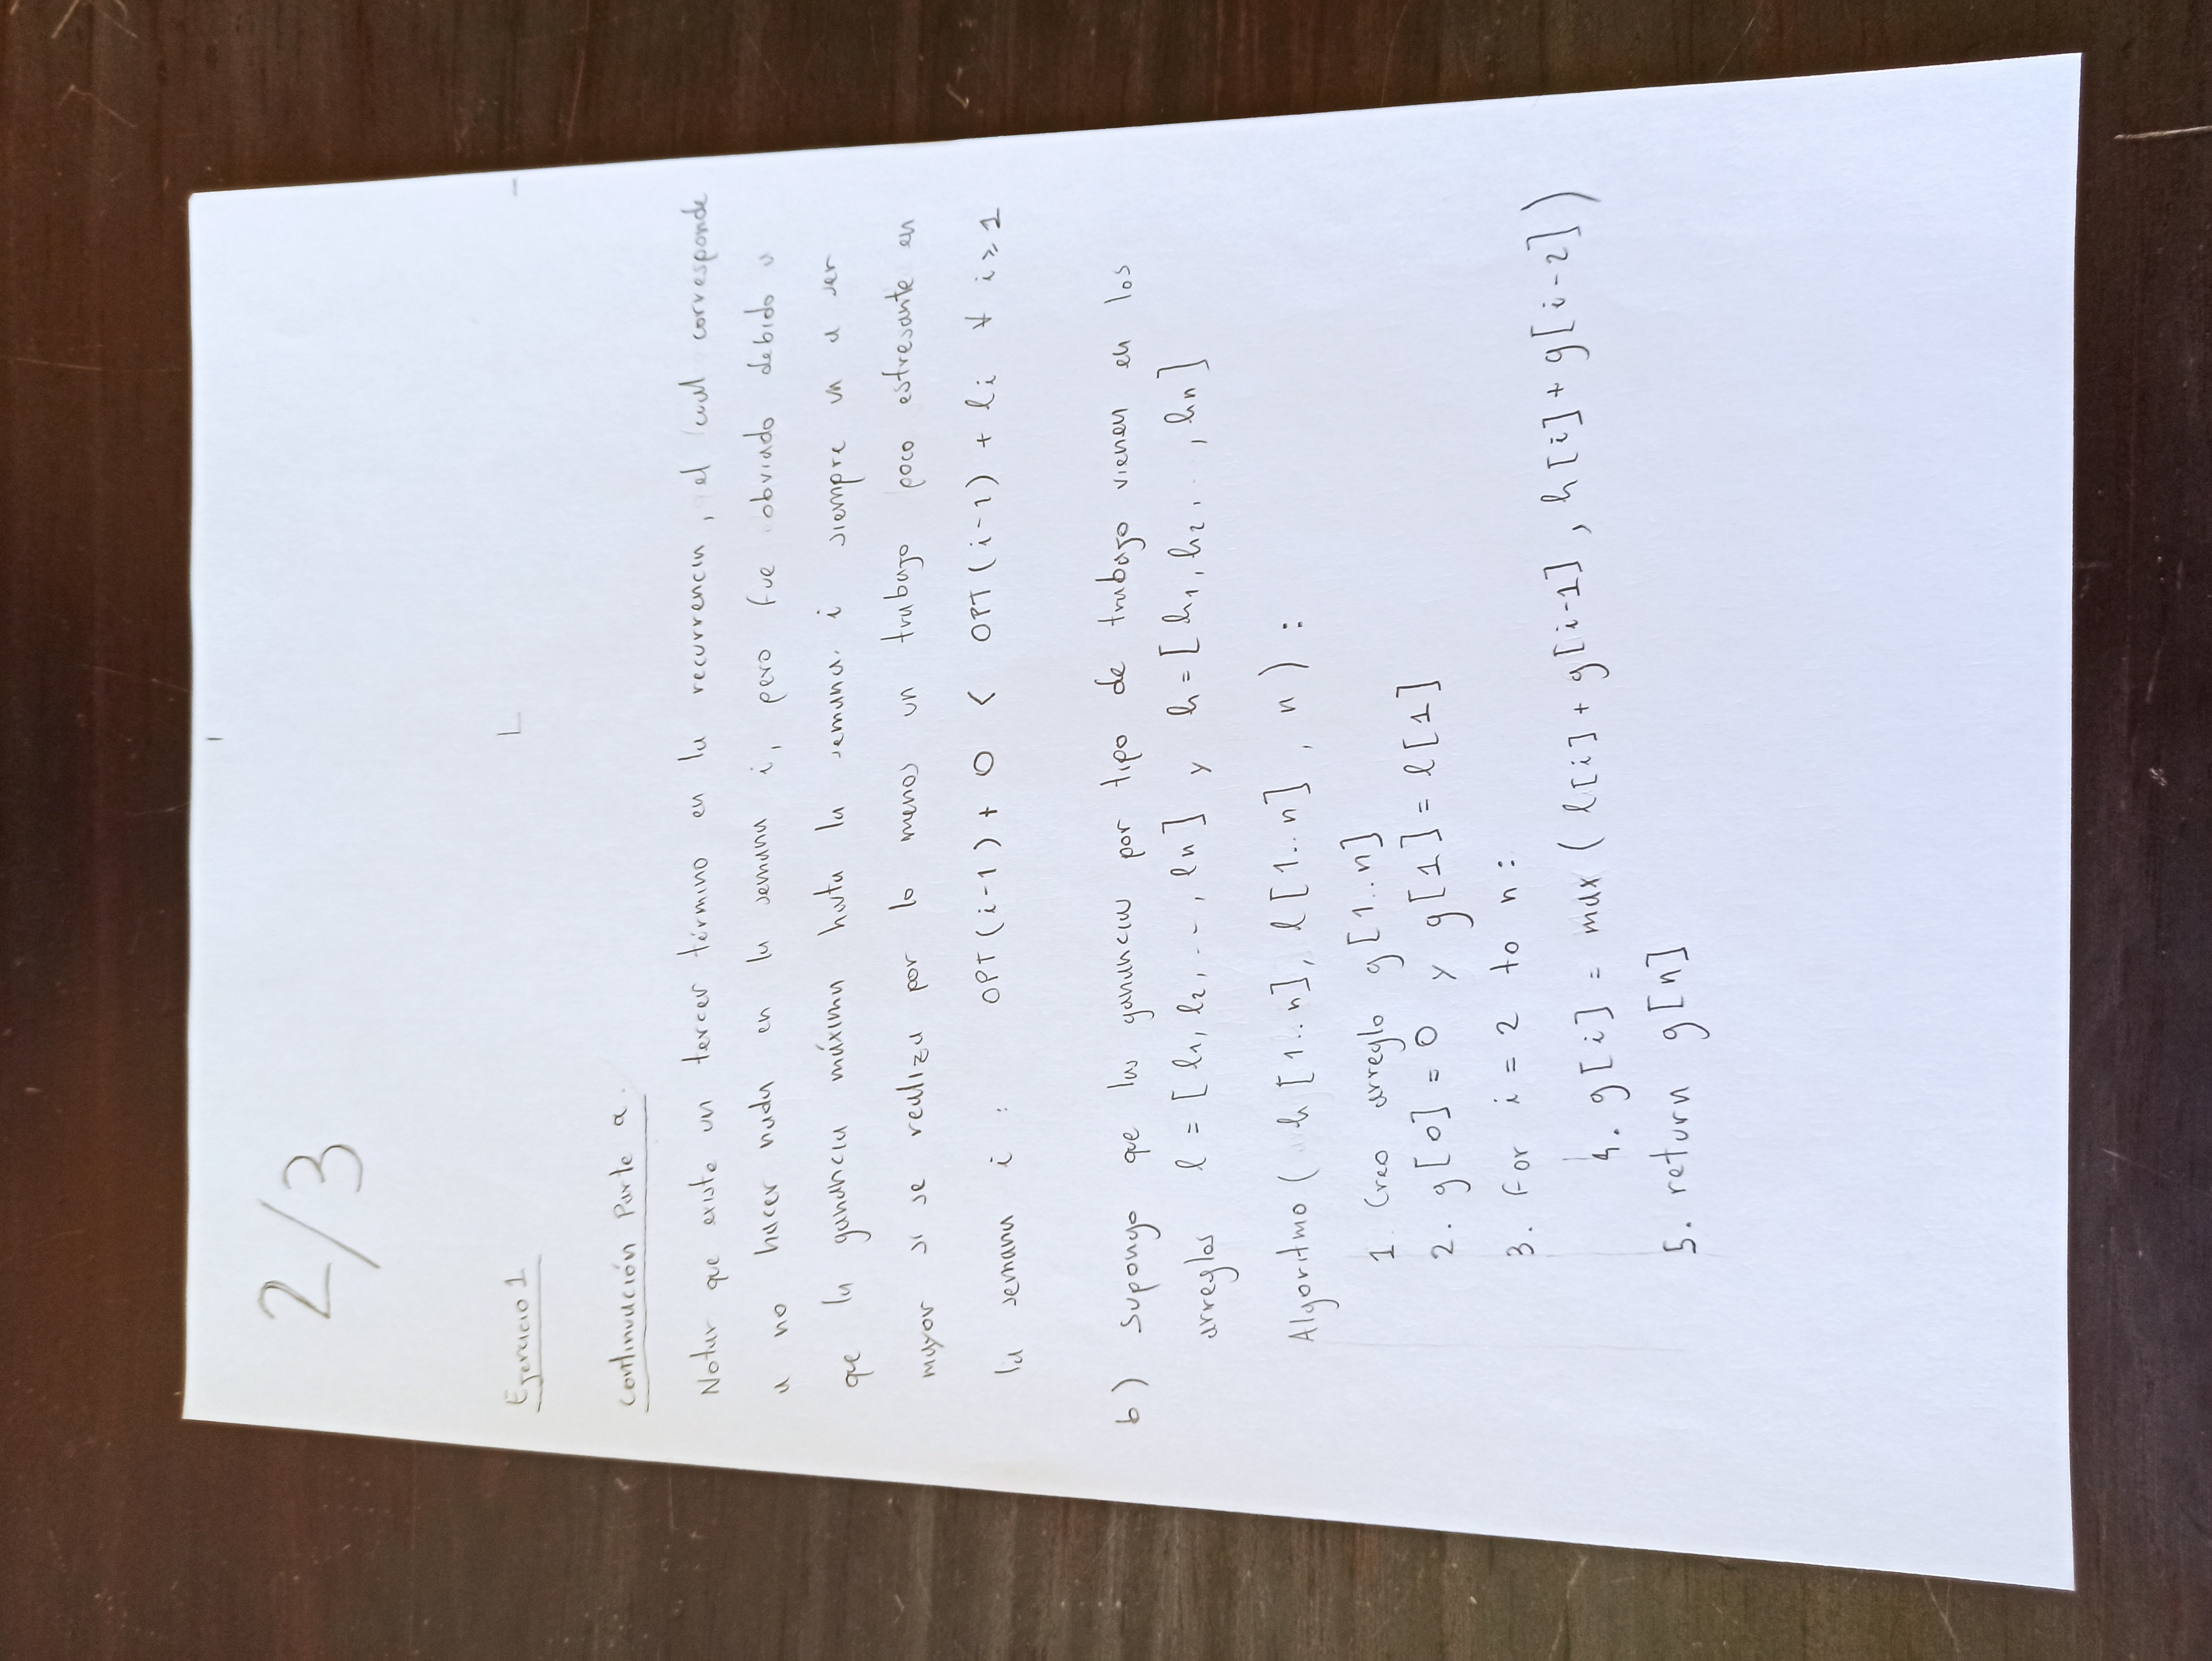 2/3
Ejercicio 1
Continuación Parte a.
Notar que existe un tercer término en la recurrencia, el cual corresponde
a no hacer nada en la semana i, pero fue obviado debido a
que la ganancia máxima hasta la semana i siempre va a ser
mayor si se realiza por lo menos un trabajo poco estresante en
la semana i : OPT(i-1) + 0 < OPT(i-1) + li ∀ i ≥ 1
b) Supongo que las ganancias por tipo de trabajo vienen en los
arreglos l = [l1, l2, ..., ln] y h = [h1, h2, ..., hn]
Algoritmo ( h[1..n], l[1..n], n ) :
1. Creo arreglo g[1..n]
2. g[0] = 0 y g[1] = l[1]
3. For i = 2 to n :
4. g[i] = max ( l[i] + g[i-1], h[i] + g[i-2] )
5. return g[n]